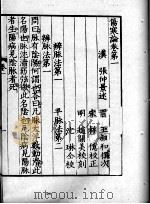 傷寒論卷第一
漢　張仲景述
晉　王叔和撰次
宋　林億校正
明　趙開美校刻
沈　琳仝校
辨脉法第一　平脉法第二
辨脉法第一
問曰脉有陰陽何謂也荅曰凡脉大浮數動滑此
名陽也脉沉濇弱弦微此名陰也凡陰病見陽脉
者生陽病見陰脉者死